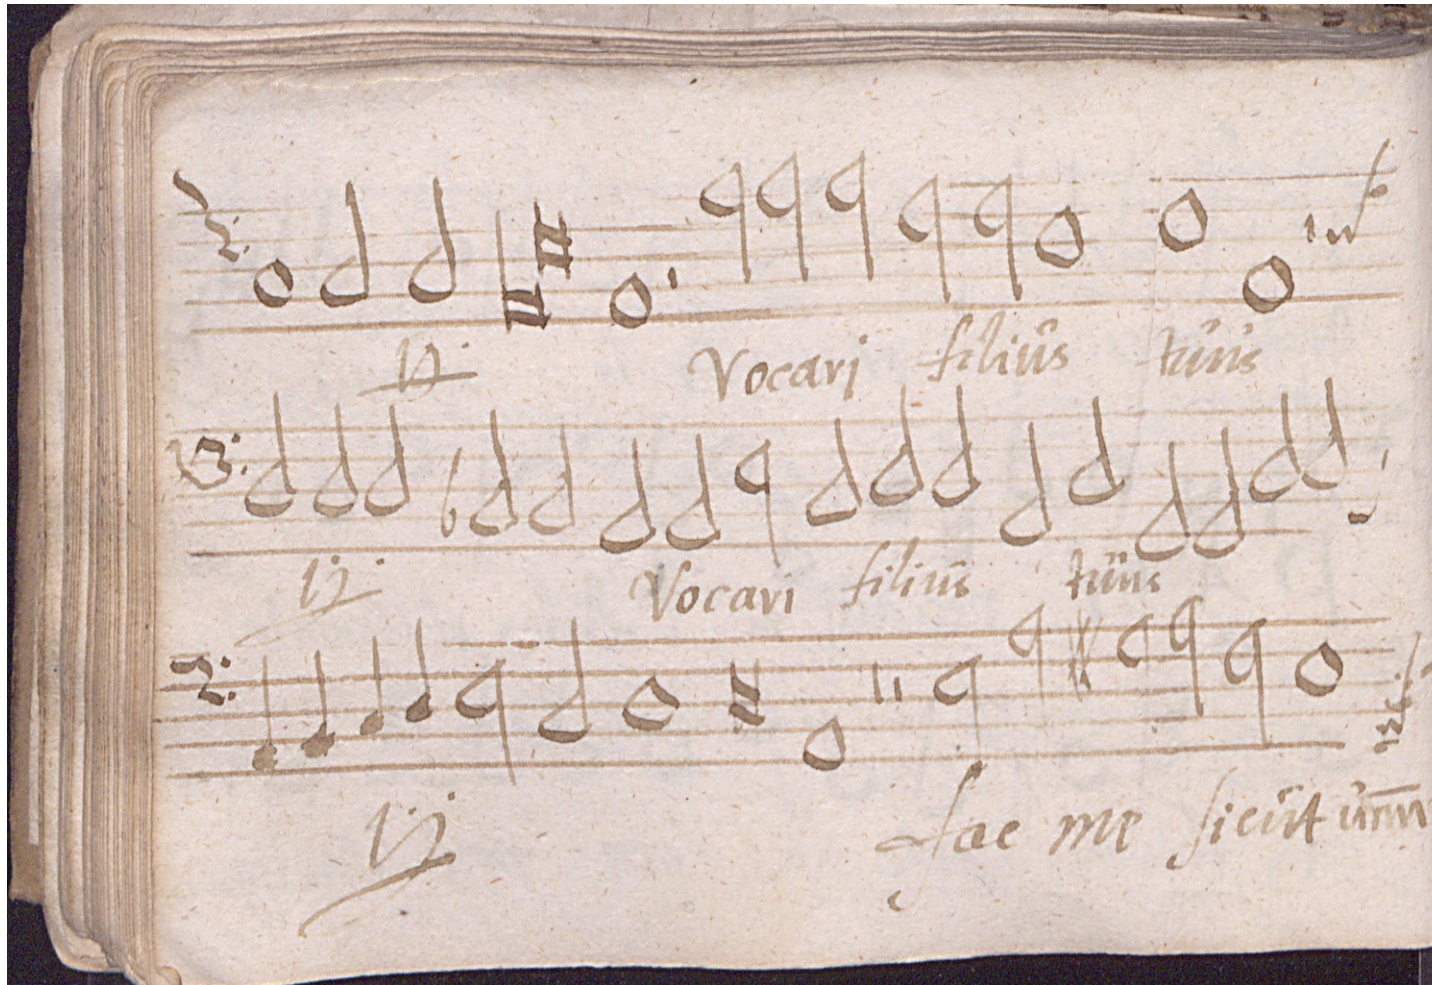 ij. Vocari filiūs tūūs
ij. Vocari filiūs tūūs
ij Fac me sicūt